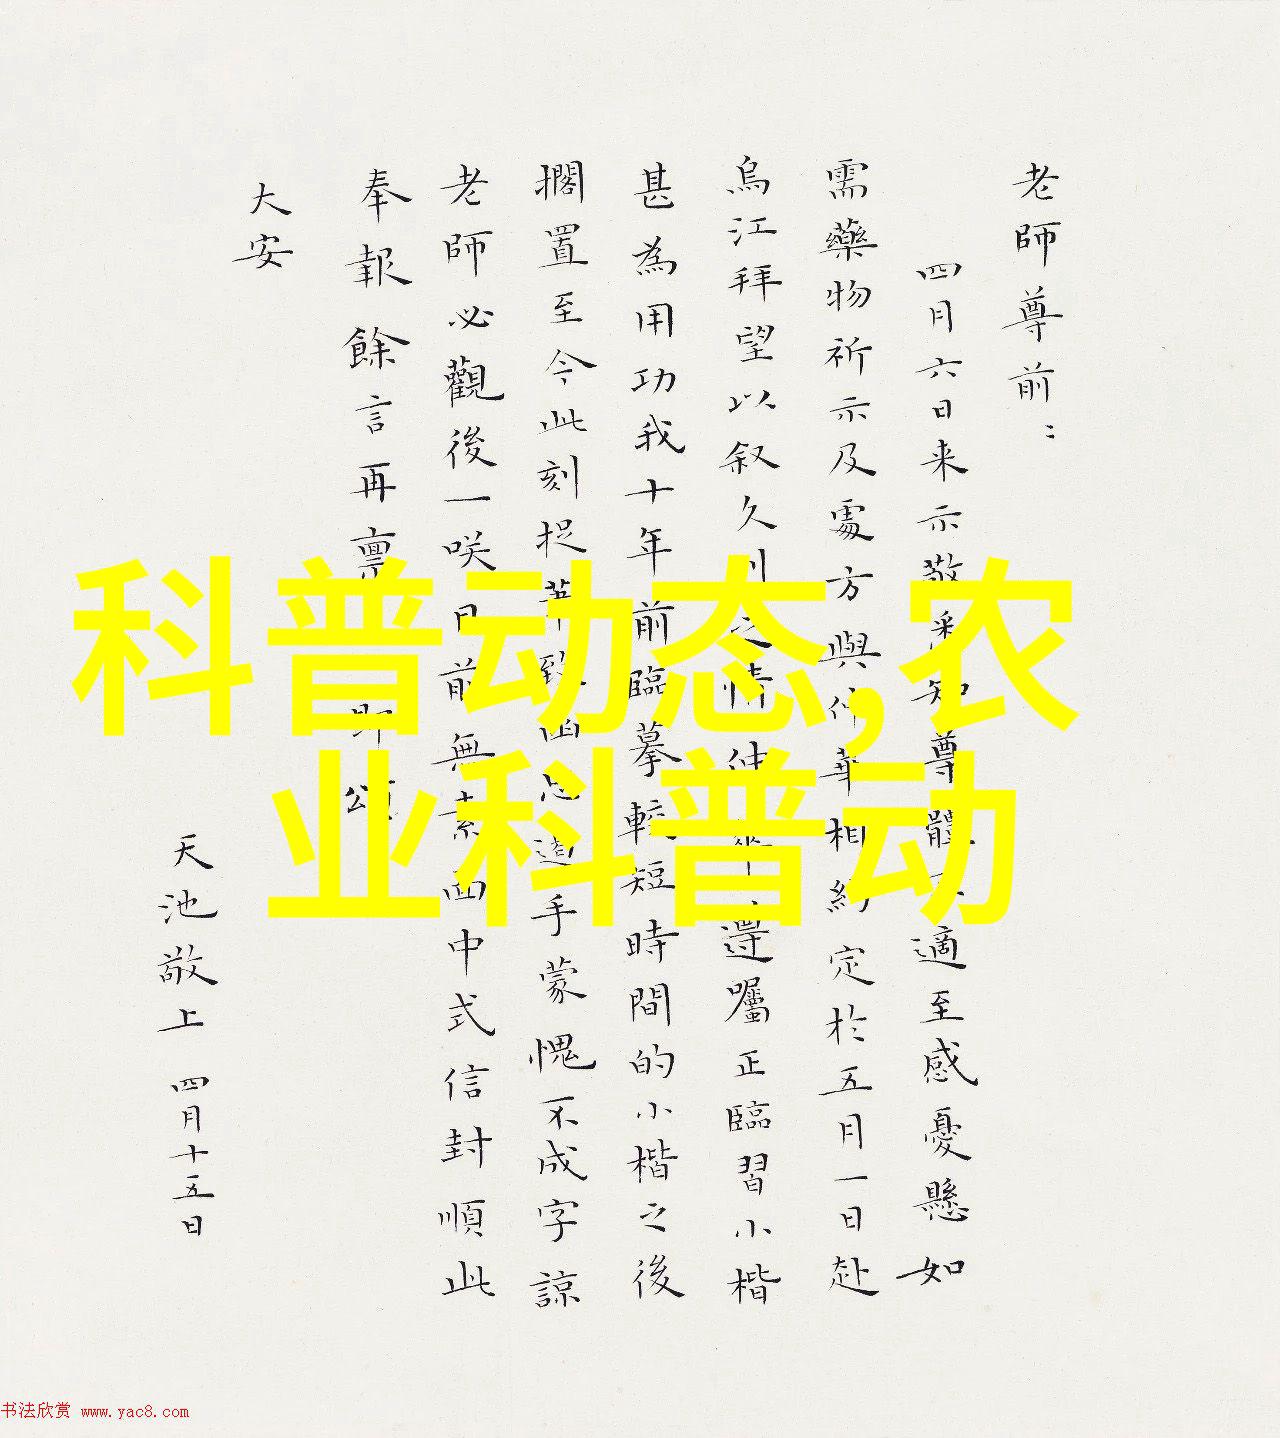 老師尊前：
四月六日来示敬悉知尊體不適至感憂懸如
需藥物祈示及處方與仲華相約定於五月一日赴
烏江拜望以叙久別之情仲華遵囑正臨習小楷
甚為用功我十年前臨摹較短時間的小楷之後
擱置至今此刻捉筆致函心遠手蒙愧不成字諒
老師必觀後一咲日前無素西中式信封順此
奉報餘言再禀即頌
大安
天池敬上 四月十五日
科普动态,农
业科普动
书法欣赏 www.yac8.com